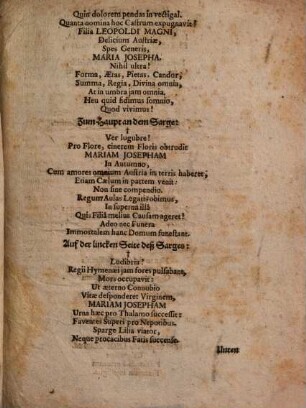 Quin dolorem pendas in vectigal.
Quanta nomina hoc Castrum expugnavit?
Filia LEOPOLDI MAGNI,
Delicium Austriæ,
Spes Generis,
MARIA JOSEPHA.
Nihil ultra!
Forma, Ætas, Pietas, Candor,
Summa, Regia, Divina omnia,
At in umbra jam omnia,
Heu quid fidimus somnio,
Quod vivimus!
Zum Haupt an dem Sarge:
†
Ver lugubre!
Pro Flore, cinerem Floris obtrudit
MARIAM JOSEPHAM
In Autumno,
Cum amores omnium Austria in terris haberet,
Etiam Cælum in partem venit:
Non sine compendio.
Regum Aulas Legatis obimus,
In superna illa
Quis Filiâ melius Causam ageret!
Adeo nec Funera
Immortalem hanc Domum funestant.
Auf der lincken Seite deß Sarges:
†
Ludibria!
Regii Hymenæi jam fores pulsabant,
Mors occupavit:
Ut æterno Connubio
Vitæ desponderet Virginem,
MARIAM JOSEPHAM
Urna hæc pro Thalamo successit:
Faveant Superi pro Nepotibus.
Sparge Lilia viator,
Neque procacibus Fatis succense.